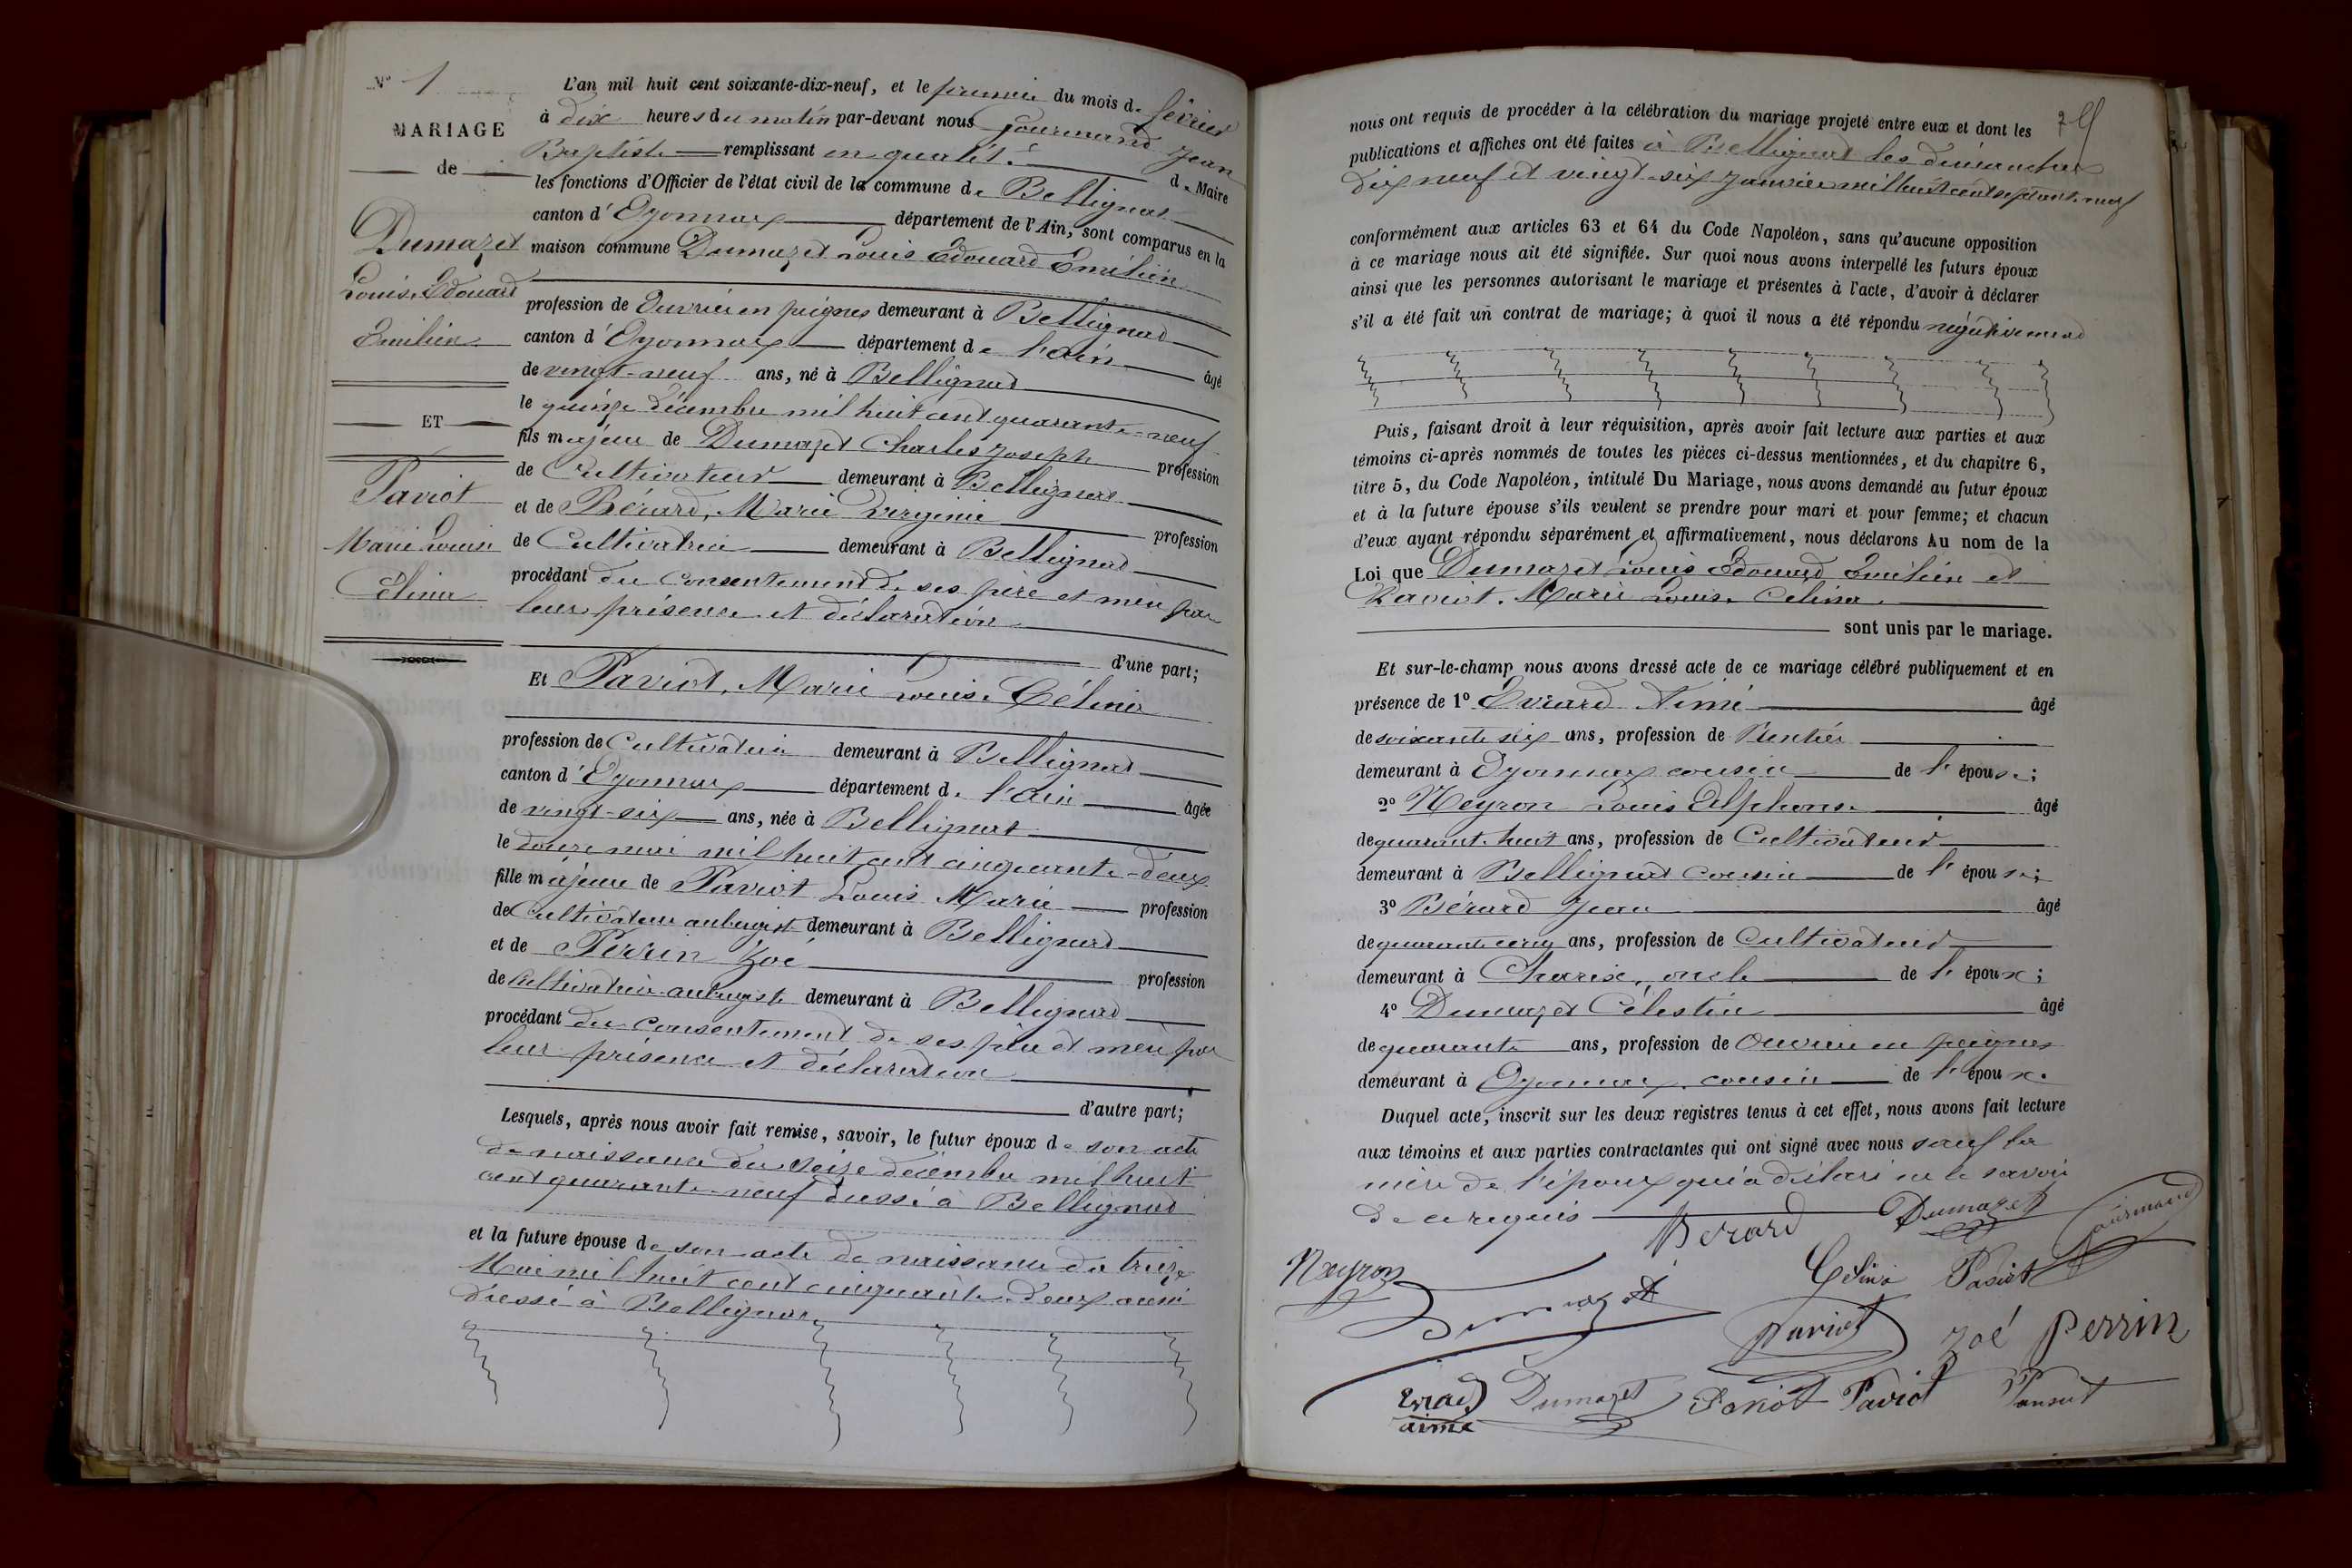 N° 1
MARIAGE
de
Dumazet
Louis Edouard
Emilien
ET
Paviot
Marie Louise
Célina
L'an mil huit cent soixante-dix-neuf, et le premier du mois de février
à dix heures du matin par-devant nous Gourmand Jean
Baptiste remplissant en qualité de Maire
les fonctions d'Officier de l'état civil de la commune de Bellignat
canton d'Oyonnax département de l'Ain, sont comparus en la
maison commune Dumazet Louis Edouard Emilien
profession de Ouvrier en peignes demeurant à Bellignat
canton d'Oyonnax département de l'ain âgé
de vingt-neuf ans, né à Bellignat
le quinze décembre mil huit cent quarante-neuf
fils majeur de Dumazet Charles Joseph profession
de Cultivateur demeurant à Bellignat
et de Bérard, Marie Virginie profession
de Cultivatrice demeurant à Bellignat
procédant du consentement de ses père et mère par
leur présence et déclaration
d'une part;
Et Paviot, Marie Louise Célina
profession de Cultivatrice demeurant à Bellignat
canton d'Oyonnax département de l'ain âgée
de vingt-six ans, née à Bellignat
le douze mai mil huit cent cinquante-deux
fille majeure de Paviot Louis Marie profession
de Cultivateur aubergiste demeurant à Bellignat
et de Perrin Zoé profession
de Cultivatrice aubergiste demeurant à Bellignat
procédant du consentement de ses père et mère par
leur présence et déclaration
d'autre part;
Lesquels, après nous avoir fait remise, savoir, le futur époux de son acte
de naissance du seize décembre mil huit
cent quarante-neuf dressé à Bellignat
et la future épouse de son acte de naissance du treize
Mai mil huit cent cinquante-deux aussi
dressé à Bellignat
nous ont requis de procéder à la célébration du mariage projeté entre eux et dont les
publications et affiches ont été faites à Bellignat les dimanches
dix neuf et vingt-six Janvier mil huit cent septante-neuf
conformément aux articles 63 et 64 du Code Napoléon, sans qu'aucune opposition
à ce mariage nous ait été signifiée. Sur quoi nous avons interpellé les futurs époux
ainsi que les personnes autorisant le mariage et présentes à l'acte, d'avoir à déclarer
s'il a été fait un contrat de mariage; à quoi il nous a été répondu négativement
Puis, faisant droit à leur réquisition, après avoir fait lecture aux parties et aux
témoins ci-après nommés de toutes les pièces ci-dessus mentionnées, et du chapitre 6,
titre 5, du Code Napoléon, intitulé Du Mariage, nous avons demandé au futur époux
et à la future épouse s'ils veulent se prendre pour mari et pour femme; et chacun
d'eux ayant répondu séparément et affirmativement, nous déclarons Au nom de la
Loi que Dumazet Louis Edouard Emilien et
Paviot. Marie Louise Celina.
sont unis par le mariage.
Et sur-le-champ nous avons dressé acte de ce mariage célébré publiquement et en
présence de 1° Evrard Aimé âgé
de soixante six ans, profession de Rentier
demeurant à Oyonnax cousin de l'épouse;
2° Neyron Louis Alphonse âgé
de quarante huit ans, profession de Cultivateur
demeurant à Bellignat cousin de l'épouse;
3° Bérard Jean âgé
de quarante cinq ans, profession de Cultivateur
demeurant à Charix, oncle de l'époux;
4° Dumazet Célestin âgé
de quarante ans, profession de Ouvrier en peignes
demeurant à Oyonnax. cousin de l'époux.
Duquel acte, inscrit sur les deux registres tenus à cet effet, nous avons fait lecture
aux témoins et aux parties contractantes qui ont signé avec nous sauf la
mère de l'époux qui a déclaré ne le savoir
de ce requis
Berard Dumazet Gourmand
Neyron Dumazet Célina Paviot
Paviot Zoé Perrin
Evrad aimé Dumazet Paviot Paviot